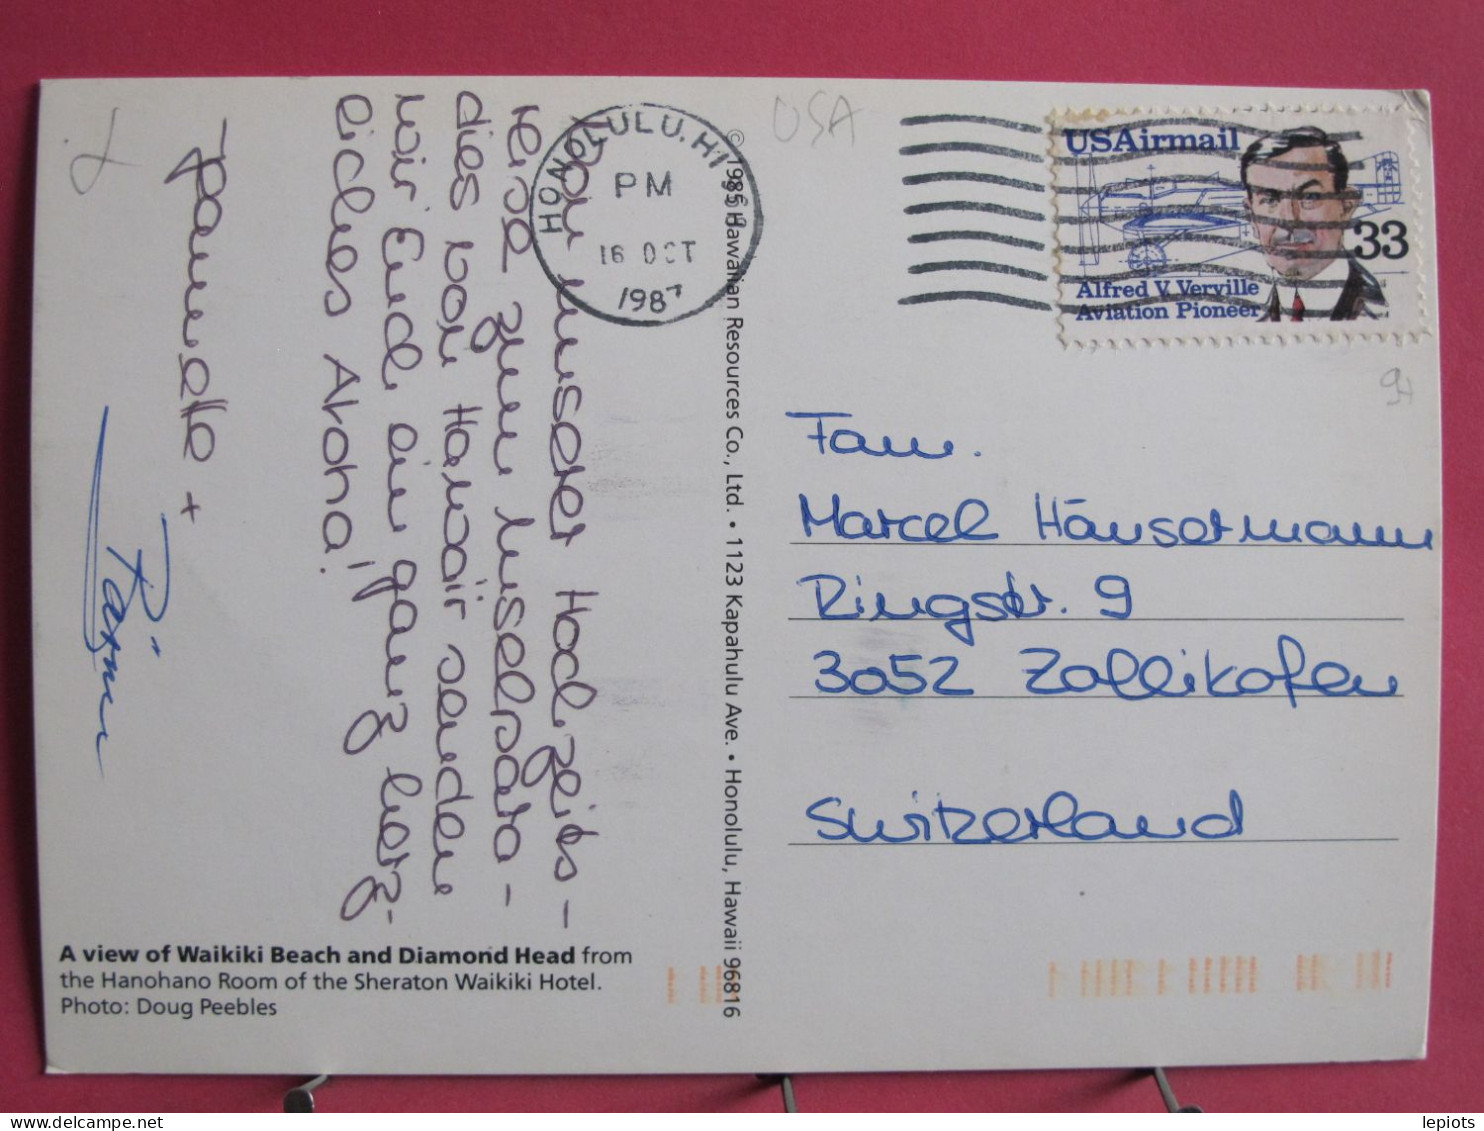 Von unserer Hochzeits-
reise zum Inselpara-
dies von Hawaii senden
wir Euch ein ganz herz-
liches Aloha!
+
A view of Waikiki Beach and Diamond Head from
the Hanohano Room of the Sheraton Waikiki Hotel.
Photo: Doug Peebles
© 1986 Hawaiian Resources Co., Ltd. • 1123 Kapahulu Ave. • Honolulu, Hawaii 96816
HONOLULU, HI 968
PM
16 OCT
1987
USA
USAirmail
33
Alfred V. Verville
Aviation Pioneer
Fam.
Marcel Häusermann
Ringstr. 9
3052 Zollikofen
Switzerland
lepiots